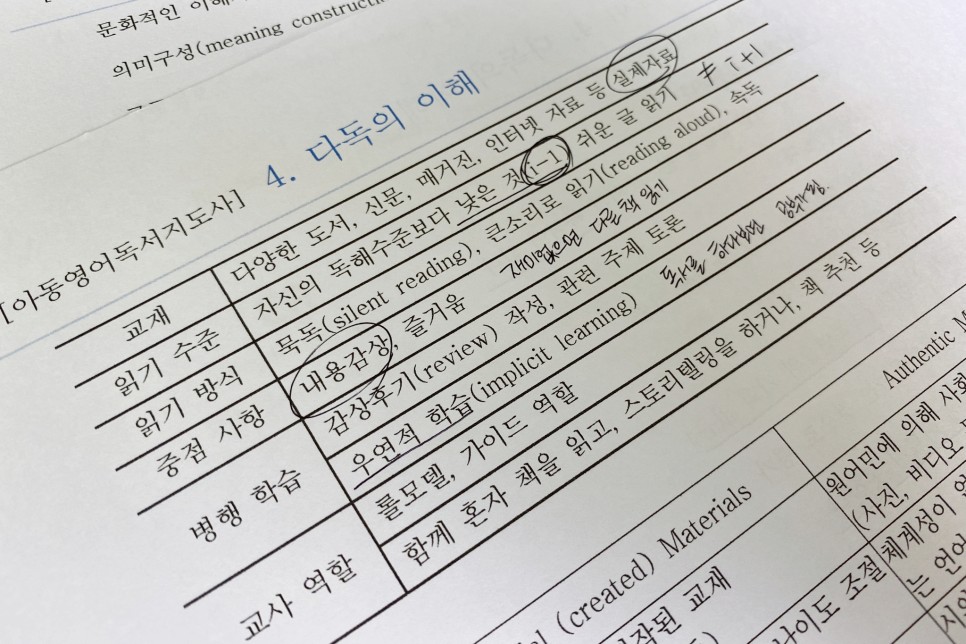 문화적인 이해
의미구성(meaning constructi
[아동영어독서지도사]
4. 다독의 이해
교재 다양한 도서, 신문, 매거진, 인터넷 자료 등 실제자료
읽기 수준 자신의 독해수준보다 낮은 것(i-1) 쉬운 글 읽기 ≠ i+1
읽기 방식 묵독(silent reading), 큰소리로 읽기(reading aloud), 속독
중점 사항 내용감상, 즐거움 재미없으면 다른 책 읽기
병행 학습 감상후기(review) 작성, 관련 주제 토론
우연적 학습(implicit learning)
교사 역할 롤모델, 가이드 역할
함께 혼자 책을 읽고, 스토리텔링을 하거나, 책 추천 등
(created) Materials
Authentic M
작된 교재
원어민에 의해 사회
(사진, 비디오
난이도 조절
체계성이
는 언어